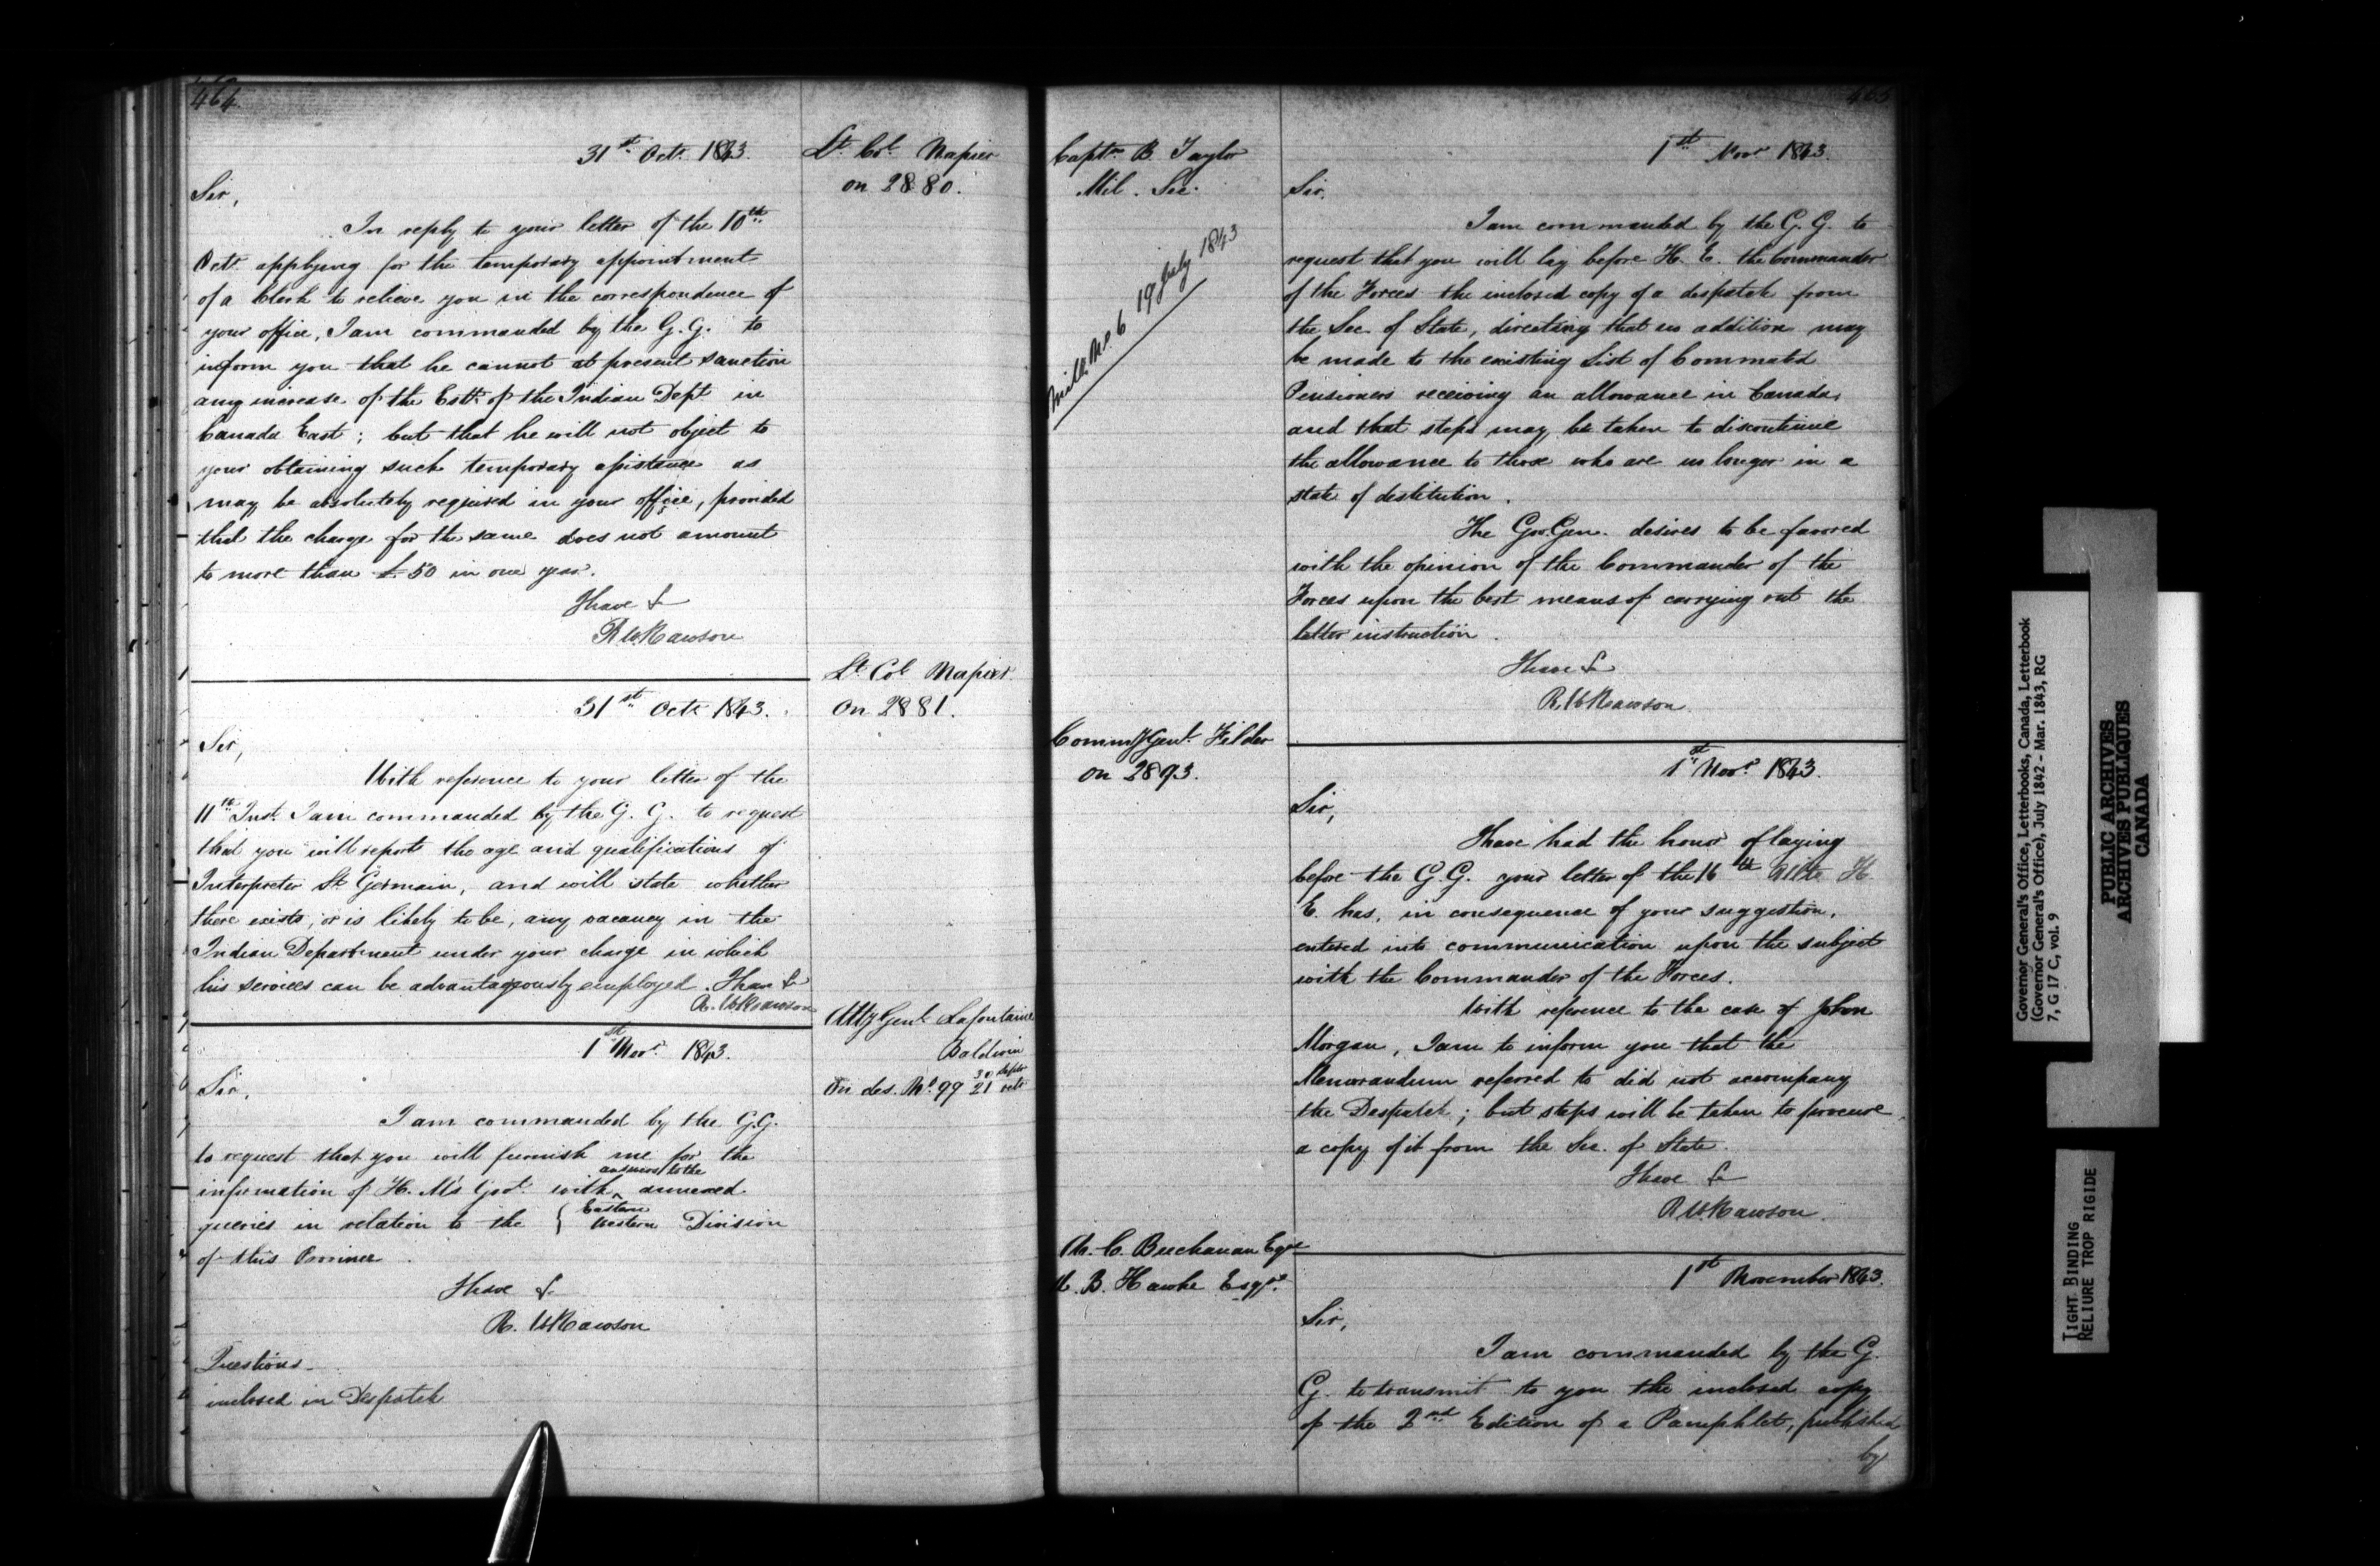 464
31st Octr 1843.
Lt. Col. Napier
on 2880.
Sir,
In reply to your letter of the 10th
Octr. applying for the temporary appointment
of a Clerk to relieve you in the correspondence of
your office, I am commanded by the G.G. to
inform you that he cannot at present sanction
any increase of the Estt. of the Indian Dept. in
Canada East; but that he will not object to
your obtaining such temporary assistance as
may be absolutely required in your office, provided
that the charge for the same does not amount
to more than £50 in one year.
I have &
R W Rawson
Lt Col Napier
on 2881.
31st Octr 1843.
Sir,
With reference to your letter of the
11th Inst. I am commanded by the G. G. to request
that you will report the age and qualifications of
Interpreter St Germain, and will state whether
there exists, or is likely to be, any vacancy in the
Indian Department under your charge in which
his services can be advantageously employed. I have &
R. W Rawson
Atty Genl. Lafontaine
Baldwin
On des. No. 99 30 Septr 21 octr
1st Novr. 1843.
Sir,
I am commanded by the G.G.
to request that you will furnish me for the
information of H. M's Govt. with ^ answers to the annexed
queries in relation to the { Eastern Western Division
of this Province.
I have &
R. W Rawson
Questions
inclosed in Despatch
465
Captn B. Taylor
Mil. Sec.
No. 6 19 July 1843
1st Novr 1843.
Sir,
I am commanded by the G. G. to
request that you will lay before H. E. the Commander
of the Forces the inclosed copy of a despatch from
the Sec. of State, directing that no addition may
be made to the existing List of Commuted
Pensioners receiving an allowance in Canada,
and that steps may be taken to discontinue
the allowance to those who are no longer in a
state of destitution.
The Gov. Gen. desires to be favored
with the opinion of the Commander of the
Forces upon the best means of carrying out the
latter instruction.
I have &
R. W Rawson
Commy Genl. Filder
on 2893.
1st Novr. 1843.
Sir,
I have had the honor of laying
before the G. G. your letter of the 16th Ulto H.
E. has, in consequence of your suggestion,
entered into communication upon the subject
with the Commander of the Forces.
With reference to the case of John
Morgan, I am to inform you that the
Memorandum referred to did not accompany
the Despatch; but steps will be taken to procure
a copy of it from the Sec. of State.
I have &
R W. Rawson
A. C. Buchanan Esqre
A. B. Hawke Esqre.
1st November 1843.
Sir,
I am commanded by the G.
G. to transmit to you the inclosed copy
of the 2nd Edition of a Pamphlet, published
by
Governor General's Office, Letterbooks, Canada, Letterbook
(Governor General's Office), July 1842 - Mar. 1843, RG
7, G 17 C, vol. 9
PUBLIC ARCHIVES
ARCHIVES PUBLIQUES
CANADA
TIGHT BINDING
RELIURE TROP RIGIDE